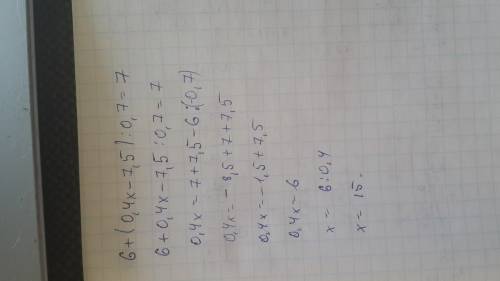 6+(0,4x-7,5):0,7=7
6+0,4x-7,5:0,7=7
0,4x=7+7,5-6:(-0,7)
0,4x=-8,5+7+7,5
0,4x=-1,5+7,5
0,4x=6
x= 6:0,4
x=15.